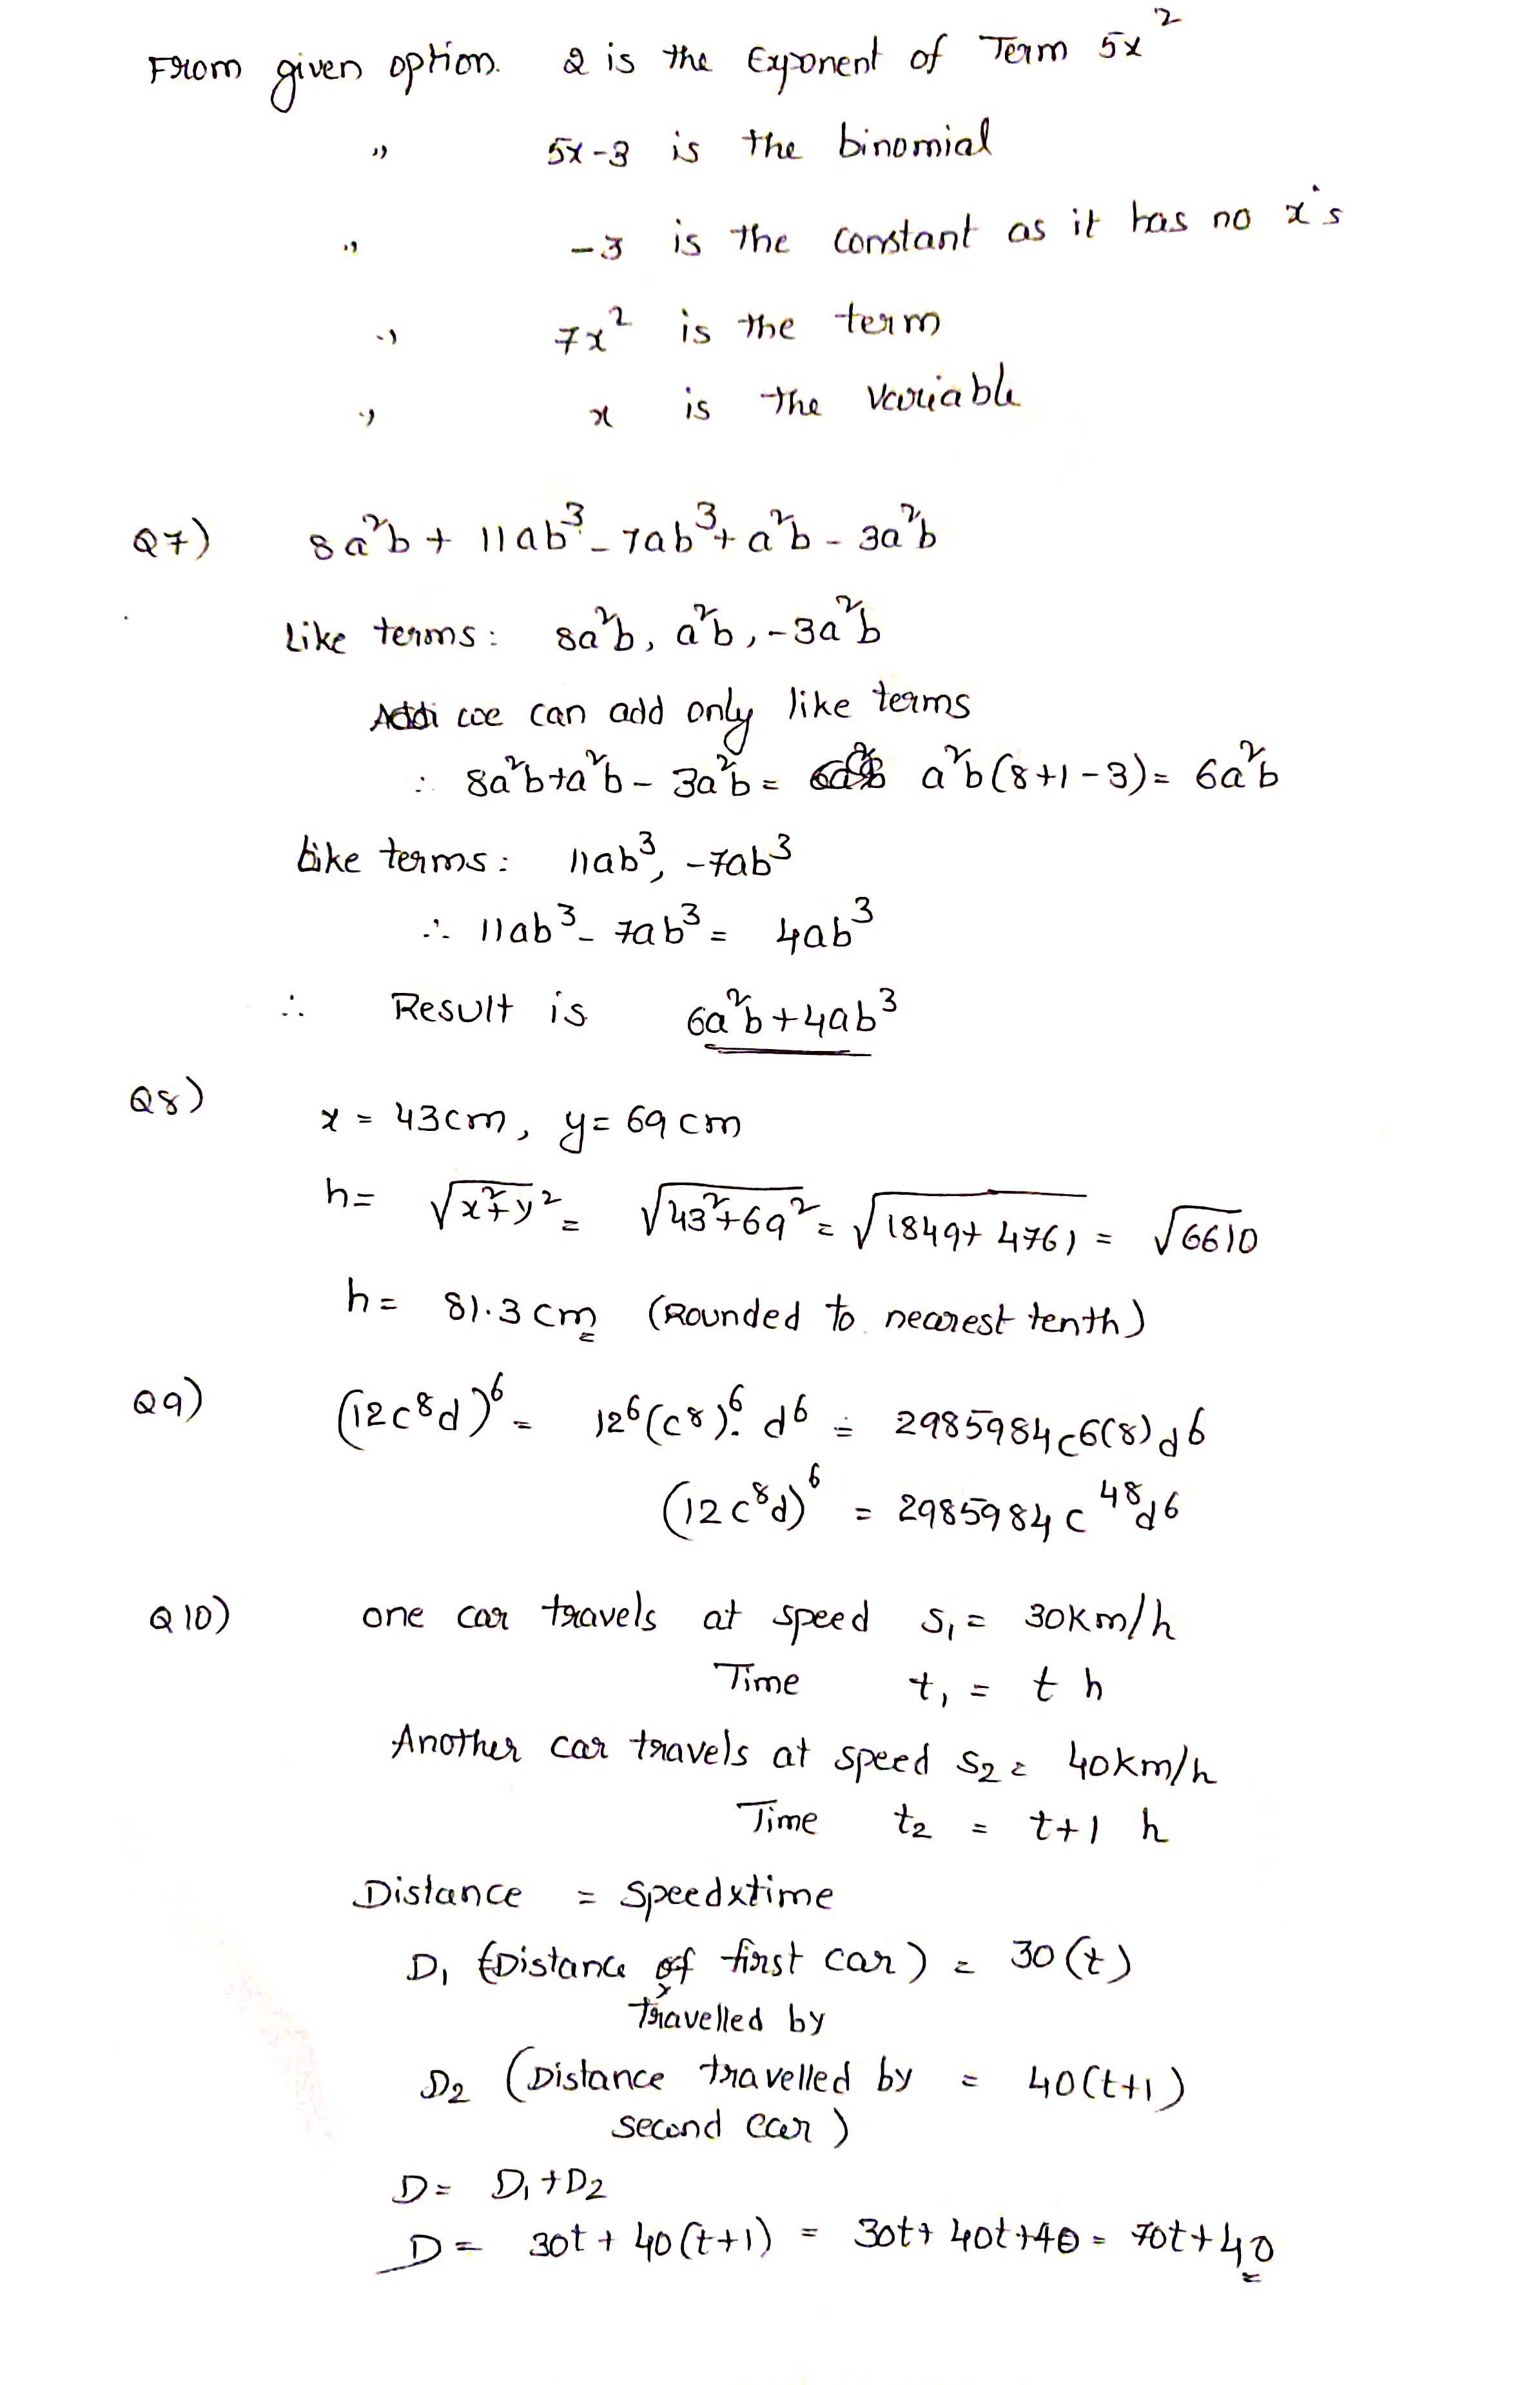 From given option. 2 is the Exponent of Term 5x²
" 5x-3 is the binomial
" -3 is the constant as it has no x's
" 7x² is the term
" x is the variable
Q7) 8a²b + 11ab³ - 7ab³ + a²b - 3a²b
Like terms: 8a²b, a²b, -3a²b
Addi we can add only like terms
∴ 8a²b+a²b - 3a²b = a²b(8+1-3) = 6a²b
Like terms: 11ab³, -7ab³
∴ 11ab³ - 7ab³ = 4ab³
∴ Result is 6a²b+4ab³
Q8) x = 43cm, y = 69cm
h = √x²+y² = √43²+69² = √1849+4761 = √6610
h = 81.3 cm (Rounded to nearest tenth)
Q9) (12c⁸d)⁶ = 12⁶(c⁸)⁶. d⁶ = 2985984c6(8)d⁶
(12c⁸d)⁶ = 2985984c⁴⁸d⁶
Q10) one car travels at speed s₁ = 30km/h
Time t₁ = t h
Another car travels at speed s₂ = 40km/h
Time t₂ = t+1 h
Distance = speed×time
D₁ (Distance of first car) = 30(t)
Travelled by
D₂ (Distance travelled by = 40(t+1)
second car)
D = D₁+D₂
D = 30t + 40(t+1) = 30t+40t+40 = 70t+40